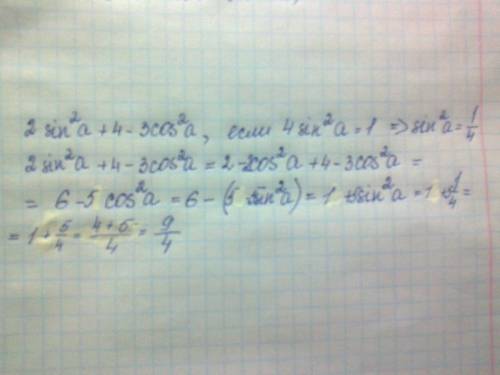 2 sin²a + 4 - 3cos²a, если 4 sin²a = 1 => sin²a = 1/4
2 sin²a + 4 - 3cos²a = 2 - 2cos²a + 4 - 3cos²a =
= 6 - 5 cos²a = 6 - (5 - 5sin²a) = 1 + 5sin²a = 1 + 5·1/4 =
= 1 + 5/4 = (4+5)/4 = 9/4